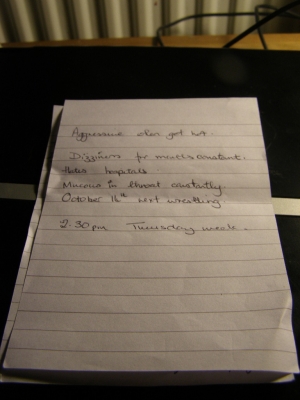 Aggressive when get hot.
Dizziness for months constant.
Hates hospitals.
Mucous in throat constantly.
October 16th next wrestling.
2.30pm Thursday week.